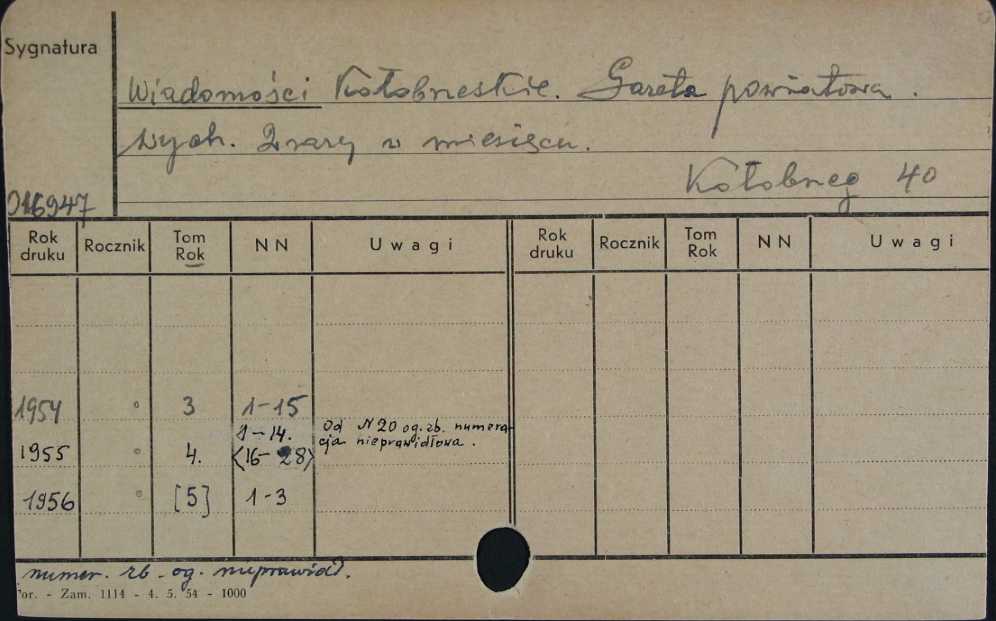 Sygnatura
Wiadomości Kołobrzeskie. Gazeta powiatowa.
Wych. 2 razy w miesiącu.
Kołobrzeg 40
016947
Rok druku Rocznik Tom Rok NN Uwagi Rok druku Rocznik Tom Rok NN Uwagi
1954 ° 3 1-15
1955 ° 4. 1-14. <16-28> Od N 20 og. zb. numeracja nieprawidłowa.
1956 ° [5] 1-3
numer. zb. og. nieprawidł.
Tor. - Zam. 1114 - 4. 5. 54 - 1000